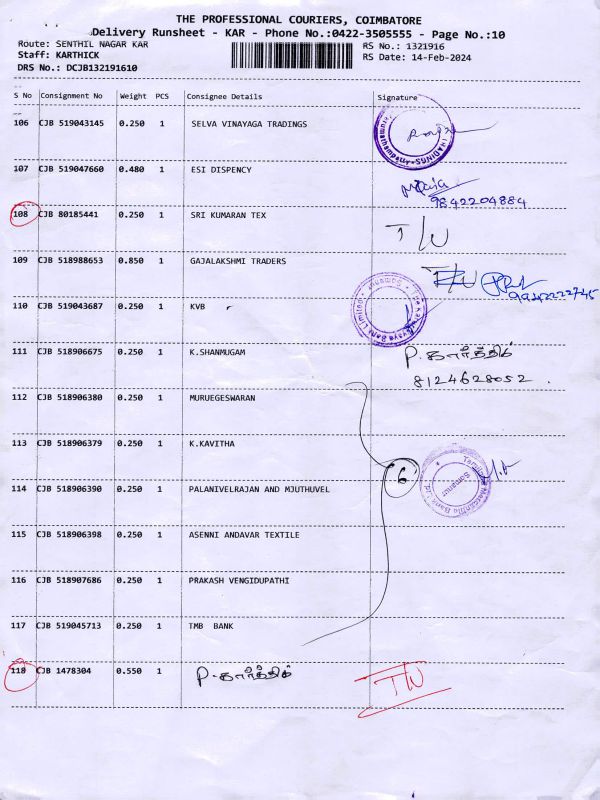 THE PROFESSIONAL COURIERS, COIMBATORE
Delivery Runsheet - KAR - Phone No.:0422-3505555 - Page No.:10
Route: SENTHIL NAGAR KAR
RS No.: 1321916
Staff: KARTHICK
RS Date: 14-Feb-2024
DRS No.: DCJB132191610
S No Consignment No Weight PCS Consignee Details Signature
106 CJB 519043145 0.250 1 SELVA VINAYAGA TRADINGS
107 CJB 519047660 0.480 1 ESI DISPENCY
9842204884
108 CJB 80185441 0.250 1 SRI KUMARAN TEX T/U
109 CJB 518988653 0.850 1 GAJALAKSHMI TRADERS
110 CJB 519043687 0.250 1 KVB
111 CJB 518906675 0.250 1 K.SHANMUGAM P. கார்த்திக்
8124628052 .
112 CJB 518906380 0.250 1 MURUEGESWARAN
113 CJB 518906379 0.250 1 K.KAVITHA
6
114 CJB 518906390 0.250 1 PALANIVELRAJAN AND MJUTHUVEL
115 CJB 518906398 0.250 1 ASENNI ANDAVAR TEXTILE
116 CJB 518907686 0.250 1 PRAKASH VENGIDUPATHI
117 CJB 519045713 0.250 1 TMB BANK
118 CJB 1478304 0.550 1 P. கார்த்திக் T/U